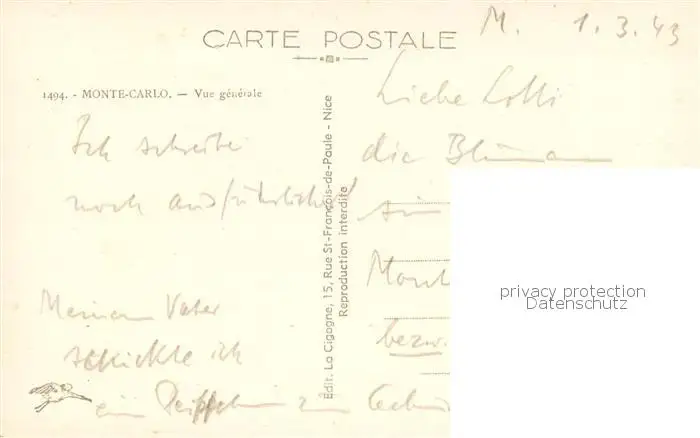 CARTE POSTALE
M. 1.3.43
1494. - MONTE-CARLO. — Vue générale
Liebe Lolli
die Blumen
sin
Mont
bezw.
Ich schreibe
noch ausführlicher!
Meinem Vater
schickte ich
ein zum
Édit. La Cigogne, 15, Rue St-François-de-Paule - Nice
Reproduction interdite
privacy protection
Datenschutz